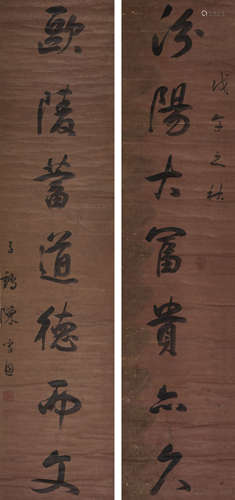 戊午之秋
汾陽大富貴亦久
歐陵蓄道德而文
子鶴陳孚恩